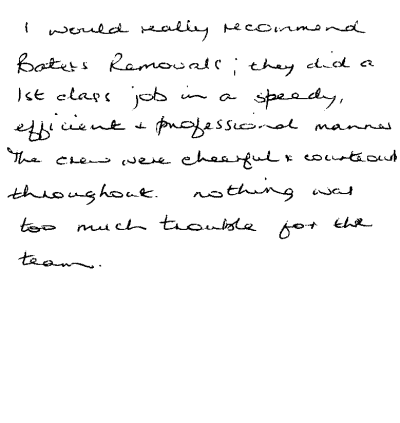 I would really recommend
Baters Removals; they did a
1st class job in a speedy,
efficient + professional manner
The crew were cheerful & courteous
throughout. nothing was
too much trouble for the
team.